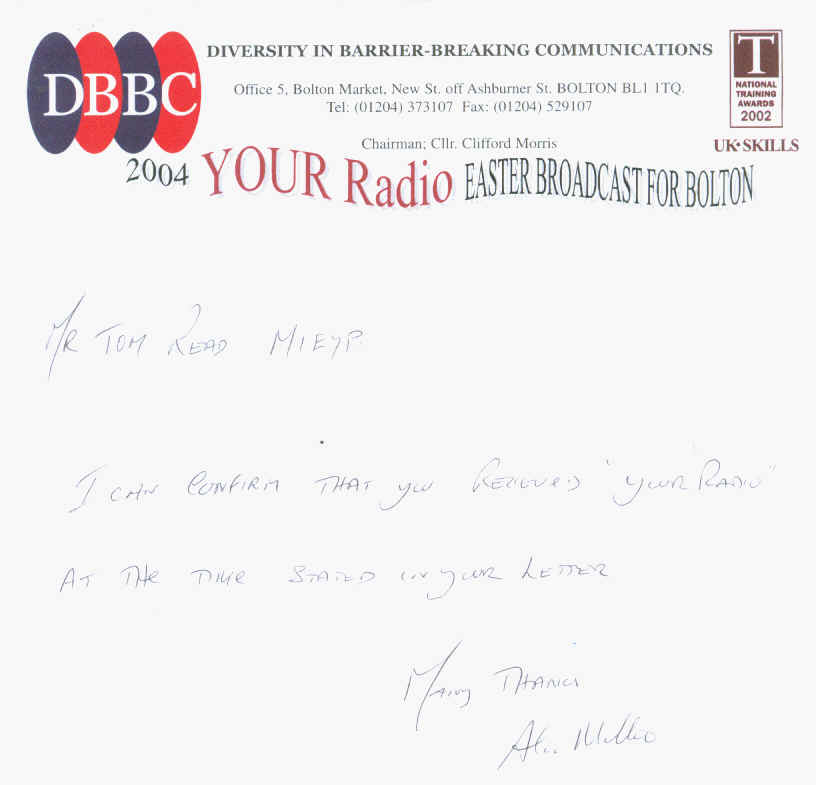 DBBC
DIVERSITY IN BARRIER-BREAKING COMMUNICATIONS
Office 5, Bolton Market, New St. off Ashburner St. BOLTON BL1 1TQ.
Tel: (01204) 373107 Fax: (01204) 529107
Chairman; Cllr. Clifford Morris
T
NATIONAL
TRAINING
AWARDS
2002
UK•SKILLS
2004 YOUR Radio EASTER BROADCAST FOR BOLTON
MR TOM READ
I CAN CONFIRM THAT YOU RECIEVED "YOUR RADIO"
AT THE TIME STATED IN YOUR LETTER
MANY THANKS